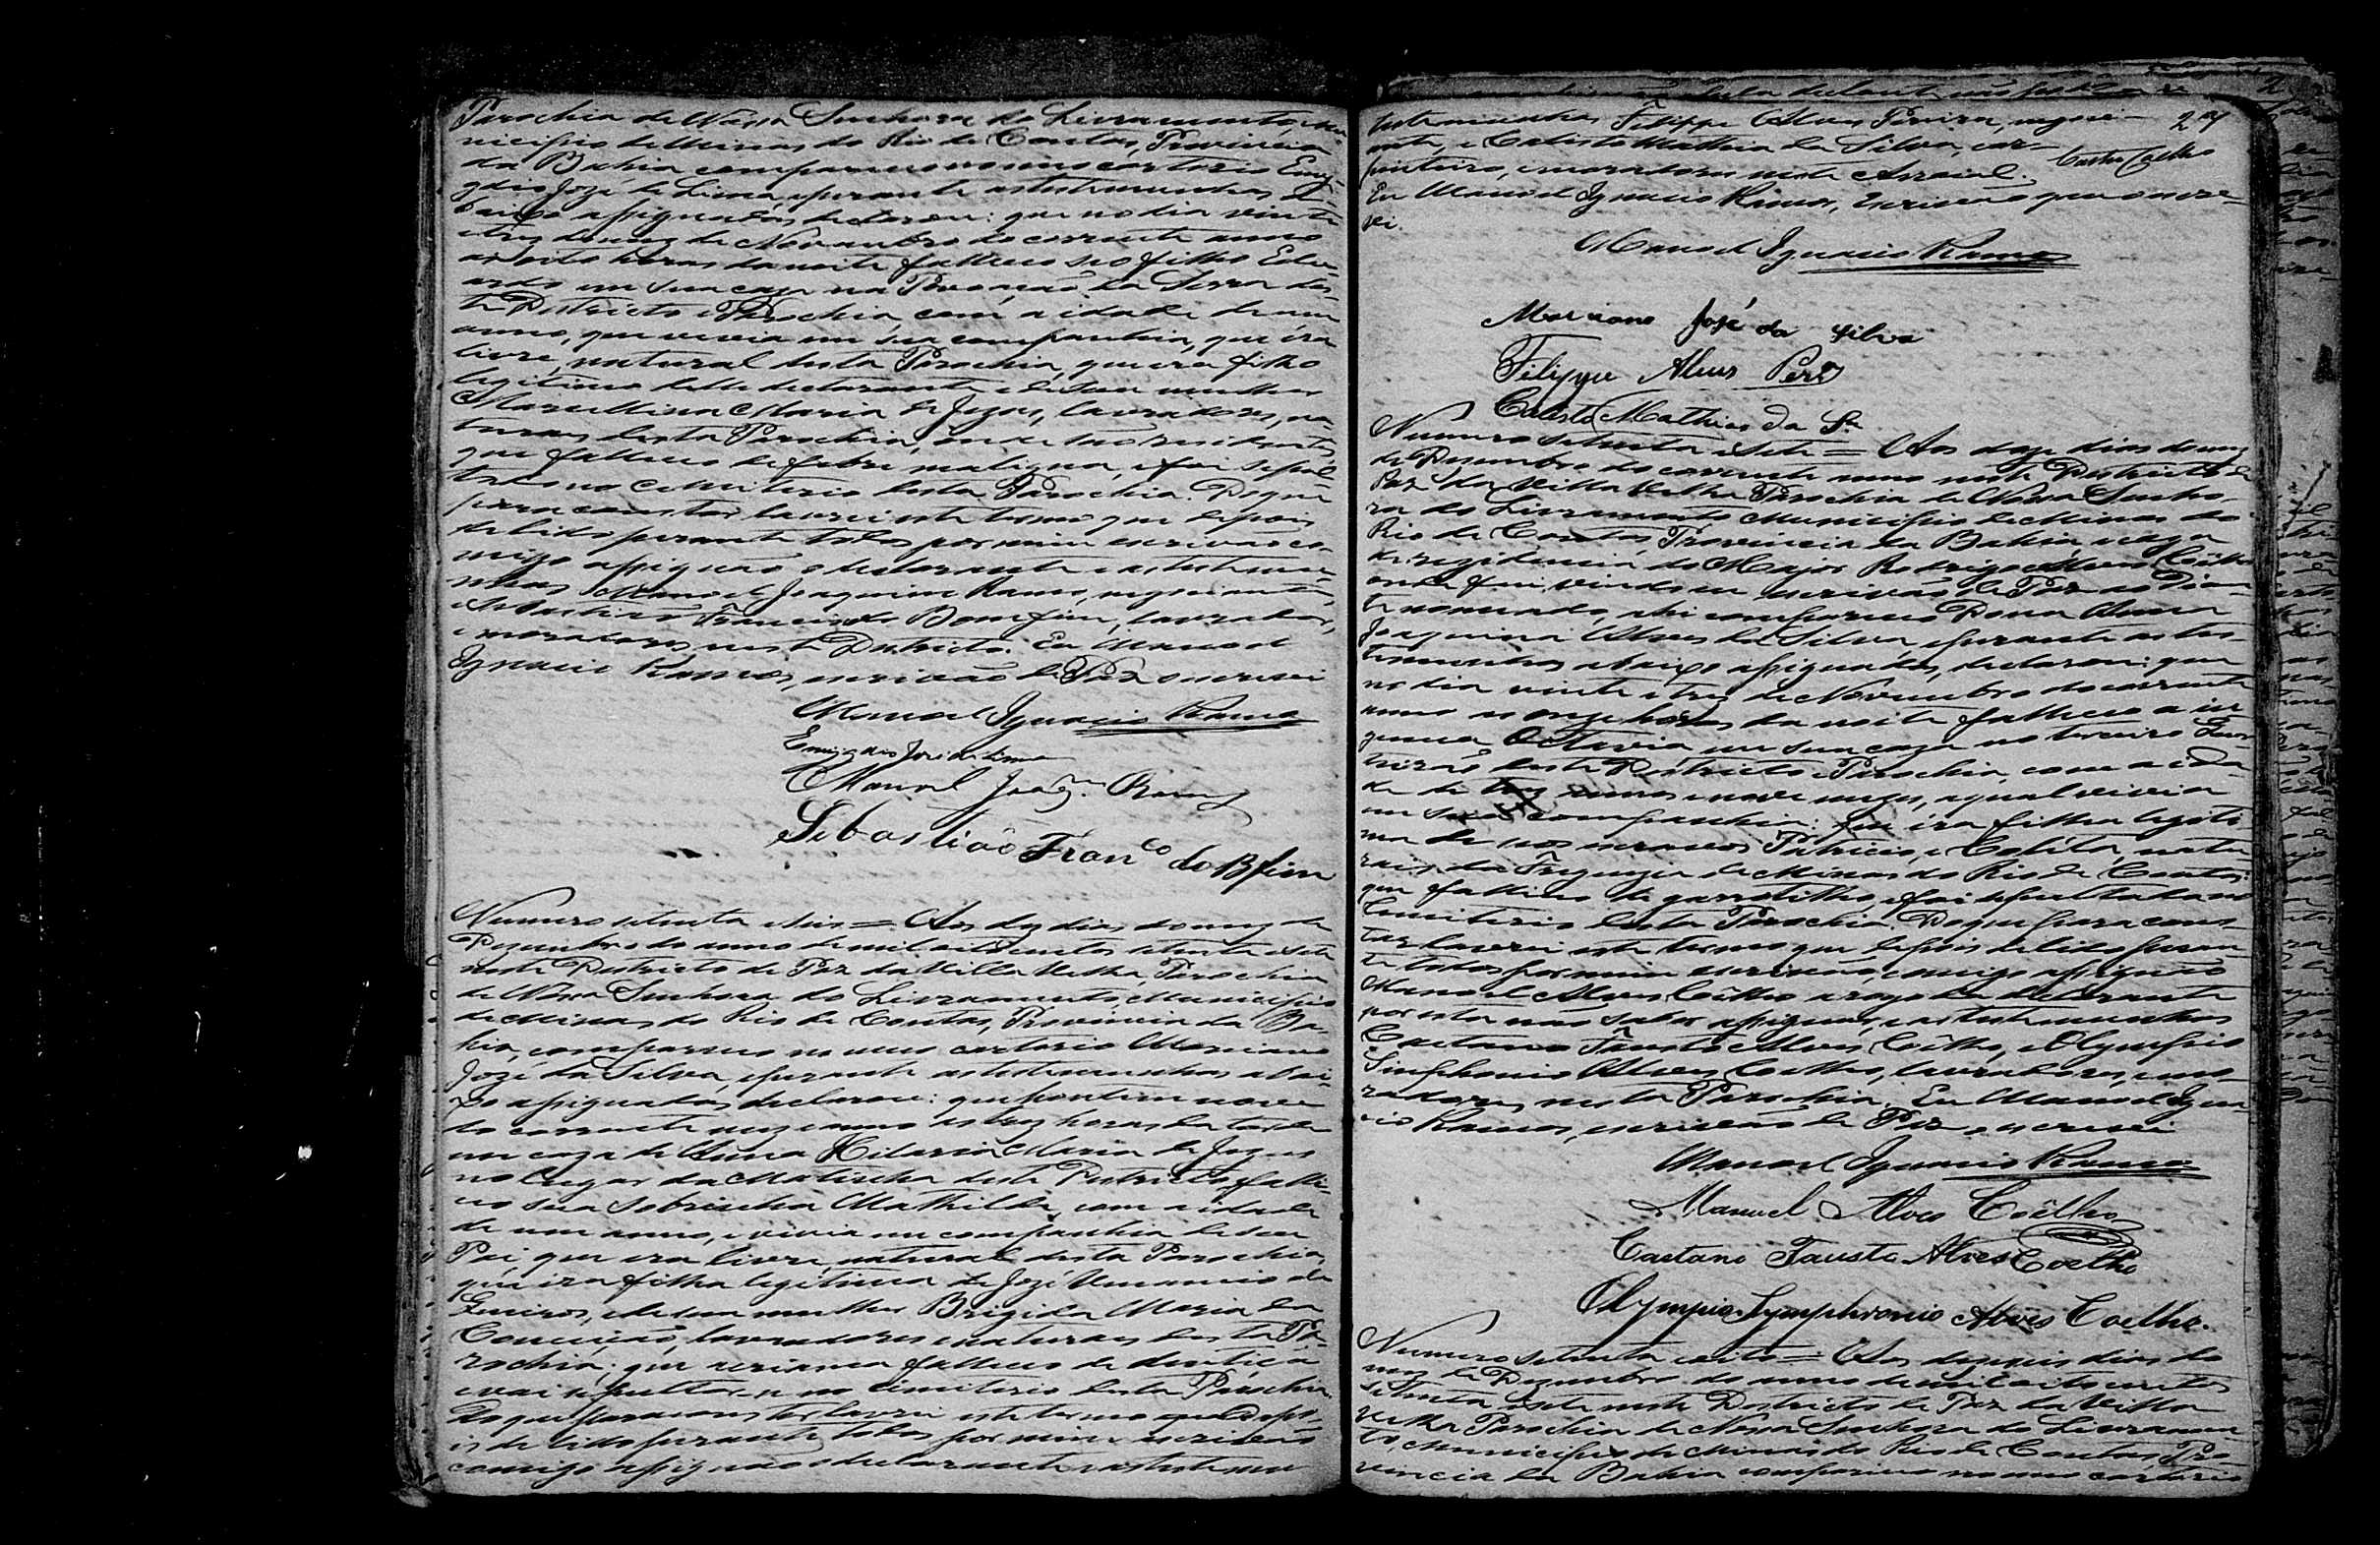 Parochia de Nossa Senhora do Livramento, Mu-
nicipio de Minas do Rio de Contas, Provincia
da Bahia compareceu no meu cartorio Emy-
gdio José de Lima, e perante as testemunhas a-
baixo assignadas declarou: que no dia vinte
e tres do mez de Novembro do corrente anno
as oito horas da noite falleceo seo filho Edu-
ardo em sua caza na Povoação da Serra des-
te Districto e Parochia, com a idade de um
anno, que vivia em sua companhia, que éra
livre, natural desta Parochia, que era filho
legitimo delle declarante e de sua mulher
Marcellina Maria de Jezus, lavradores, na-
turaes desta Parochia, onde são rezidentes,
que falleceo de febre maligna, e foi sepul-
tado no Cemiterio desta Parochia. Do que
para constar lavrei este termo que depois
de lido perante todos por mim escrivão co-
migo assignão o declarante e as testemu-
nhas Manoel Joaquim Ramos, negociante,
e Sebastião Francisco do Bomfim, lavrador,
e moradores neste Districto. Eu Manoel
Ignacio Ramos, escrivão de Paz o escrevi
Manoel Ignacio Ramos
Emigdio José de Lima
Manoel Joaqm. Ramos
Sebastião Franco do Bfim
Numero setenta e seis = Aos dez dias do mez de
Dezembro do anno de mil oitocentos setenta e sete
neste Districto de Paz da Villa Velha, Parochia
de Nossa Senhora do Livramento, Municipio
de Minas do Rio de Contas, Provincia da Ba-
hia, compareceo no meu cartorio Marciano
José da Silva, e perante as testemunhas abai-
xo assignadas declarou: que hontem nove
do corrente mez e anno as tres horas da tarde
em caza de Anna Hilaria Maria de Jezus
no lugar da deste Districto falle-
ceo sua sobrinha Mathilde, com a idade
de um anno, e vivia em companhia de seu
Pai, que era livre, natural desta Parochia,
que era filha legitima de José Venancio de
Queiros, e de sua mulher Brigida Maria da
Conceição, lavradores e naturaes desta Pa-
rochia; que a criança falleceo de dentição
e vai sepultar-se no Cimiterio desta Parochia.
Do que para constar lavrei este termo que depo-
is de lido perante todos por mim escrivão
comigo assignão o declarante e as testemu-
27
Castro Coelho
testemunhas Filippe Alves Pereira, negoci-
ante, e Calisto Mathias da Silva, car-
pinteiro, e moradores neste Arraial.
Eu Manoel Ignacio Ramos, Escrivão que o escre-
vi.
Manoel Ignacio Ramos
Marciano José da Silva
Filippe Alves Perª
Calisto Mathias da Sª
Numero setenta e sete = Aos doze dias do mez
de Dezembro do corrente anno neste Districto de
Paz da Villa Velha Parochia de Nossa Senho-
ra do Livramento Municipio de Minas do
Rio de Contas, Provincia da Bahia, e caza
de rezidencia do Major Rodrigo Alves Coêlho
onde fui vindo eu escrivão de Paz ao dian-
te nomeado, ahi compareceo Dona Anna
Joaquina Alves da Silva, e perante as tes-
temunhas abaixo assignadas, declarou: que
no dia vinte e tres de Novembro do corrente
anno as onze horas da noite falleceo a in-
genua Octavia em sua caza no terceiro Quar-
teirão deste Districto e Parochia, com a ida-
de de tres annos e nove mezes, a qual vivia
em sua companhia: que éra filha legiti-
ma de seos escravos Patricio, e Colêta, natu-
raes da Freguezia de Minas do Rio de Contas:
que falleceo de garrotilho, e foi sepultada no
Cemiterio desta Parochia. Do que para cons-
tar lavrei este termo que depois de lido peran-
te todos por mim escrivão, comigo assignão
Manoel Alves Coêlho a rogo da declarante
por esta não saber assignar, e as testemunhas
Caetano Fausto Alves Coêlho, e Olympio
Simphronio Alves Coelho, lavradores, e mo-
radores nesta Parochia. Eu Manoel Igna-
cio Ramos, escrivão de Paz o escrevi
Manoel Ignacio Ramos
Manoel Alves Coêlho
Caetano Fausto Alves Coelho
Olympio Symphronio Alves Coelho.
Numero setenta e oito = Aos dezeseis dias do
mez de Dezembro do anno de mil oito centos
setenta e sete neste Districto de Paz da Villa
Velha Parochia de Nossa Senhora do Livramen-
to, Municipio de Minas do Rio de Contas, Pro-
vincia da Bahia compareceo no meu cartorio